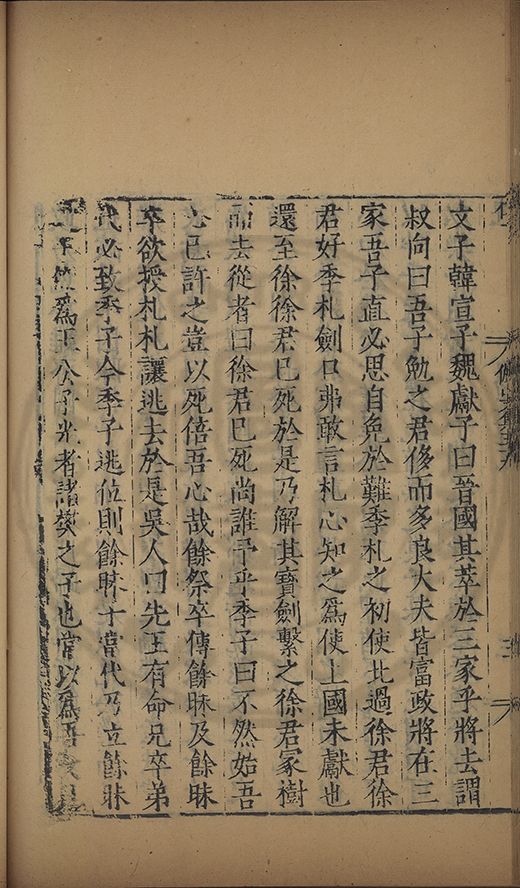 文子韓宣子魏獻子曰晉國其萃於三家乎將去謂
叔向曰吾子勉之君侈而多良大夫皆富政將在三
家吾子直必思自免於難季札之初使北過徐君徐
君好季札劍口弗敢言札心知之爲使上國未獻也
還至徐徐君已死於是乃解其寶劍繫之徐君冢樹
而去從者曰徐君已死尚誰予乎季子曰不然始吾
心已許之豈以死倍吾心哉餘祭卒傳餘昧及餘昧
卒欲授札札讓逃去於是吳人曰先王有命兄卒弟
代必致季子今季子逃位則餘昧 當代乃立餘昧
爲王公子光者諸樊之子也嘗以爲吾